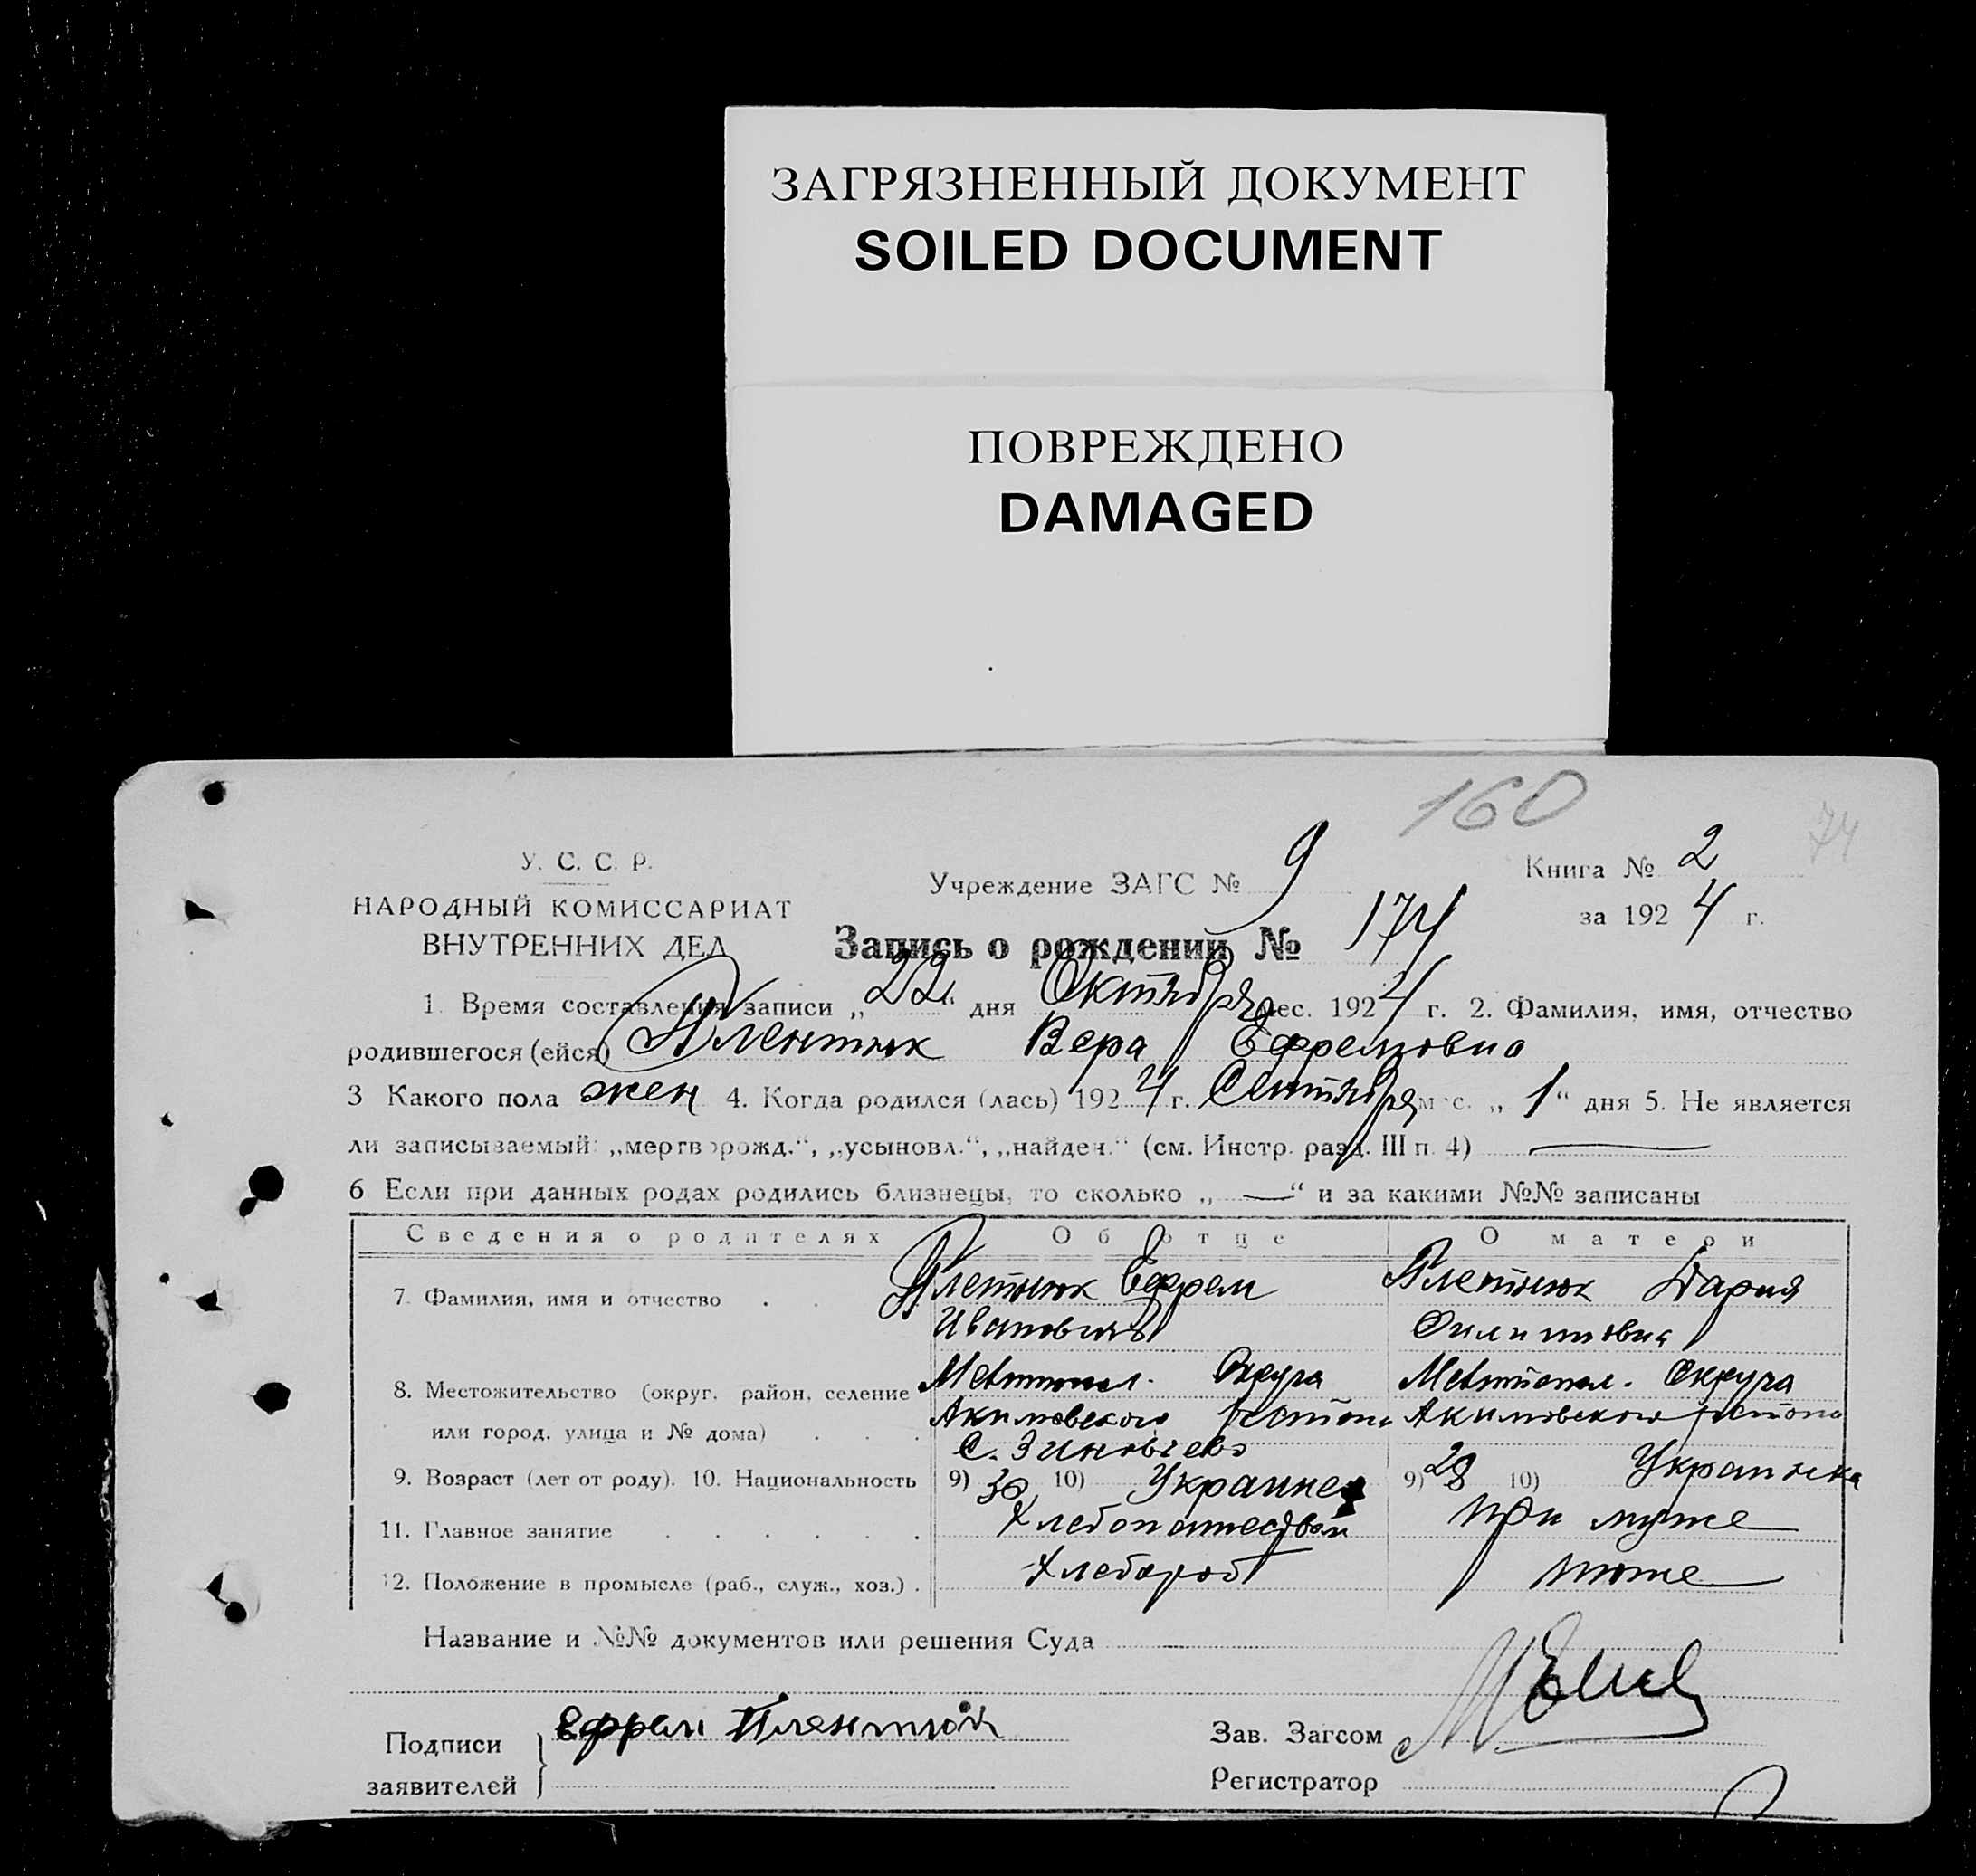 ЗАГРЯЗНЕННЫЙ ДОКУМЕНТ
SOILED DOCUMENT
ПОВРЕЖДЕНО
DAMAGED
160
74
У. С. С. Р.
НАРОДНЫЙ КОМИССАРИАТ
ВНУТРЕННИХ ДЕЛ
Учреждение ЗАГС № 9
Книга № 2
за 1924 г.
Запись о рождении № 174
1. Время составления записи „22“ дня Октября мес. 1924 г. 2. Фамилия, имя, отчество
родившегося (ейся) Плентюк Вера Ефремовна
3 Какого пола жен 4. Когда родился (лась) 1924 г. Сентября мес. „1“ дня 5. Не является
ли записываемый: „мертворожд.“, „усыновл.“, „найден.“ (см. Инстр. разд. III п. 4) —
6 Если при данных родах родились близнецы, то сколько „—“ и за какими №№ записаны
Сведения о родителях Об отце О матери
7. Фамилия, имя и отчество Плетнюк Ефрем Плетнюк Дария
Ивановичъ Филиповна
8. Местожительство (округ, район, селение Мелитопол. Округа Мелитопол. Округа
или город, улица и № дома) Акимовского района Акимовского района
с. Зиновьево
9. Возраст (лет от роду). 10. Национальность 9) 30 10) Украинец 9) 28 10) Украинка
11. Главное занятие Хлебопашеством при муже
12. Положение в промысле (раб., служ., хоз.) Хлебороб тоже
Название и №№ документов или решения Суда
Подписи заявителей Ефрем Плентюк
Зав. Загсом
Регистратор